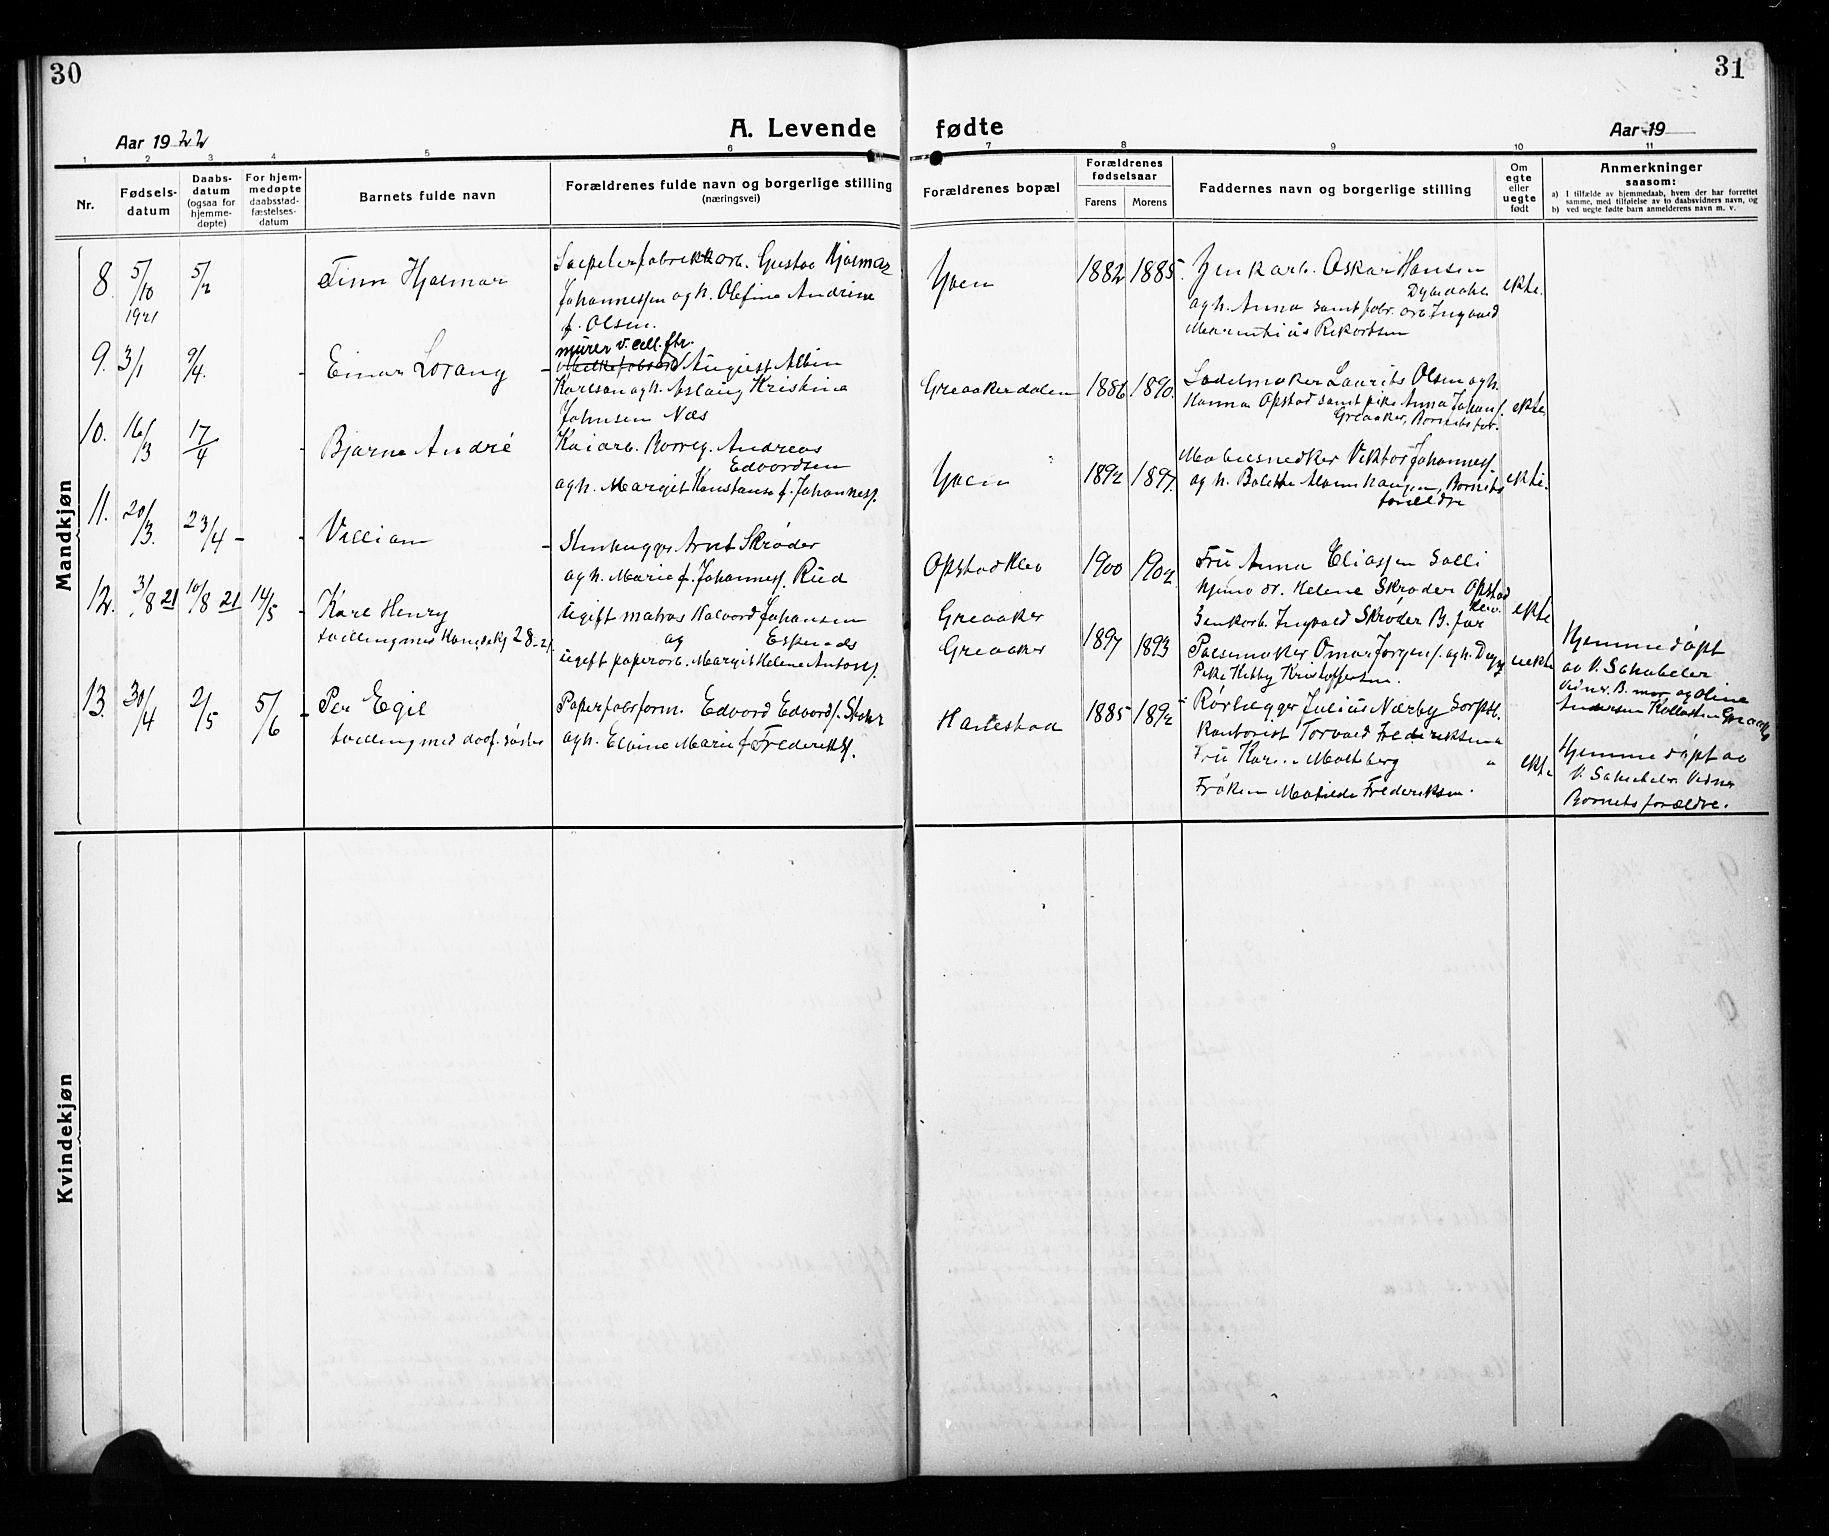 30
31
A. Levende fødte
Aar 1922
Aar 19
1 2 3 4 5 6 7 8 9 10 11
Nr.
Fødsels-
datum
Daabs-
datum
(ogsaa for
hjemme-
døpte)
For hjem-
medøpte
daabsstad-
fæstelses-
datum
Barnets fulde navn
Forældrenes fulde navn og borgerlige stilling
(næringsvei)
Forældrenes bopæl
Forældrenes
fødselsaar
Farens Morens
Faddernes navn og borgerlige stilling
Om
egte
eller
uegte
født
Anmerkninger
saasom:
a) I tilfælde av hjemmedaab, hvem der har forrettet
samme, med tilføielse av to daabsvidners navn, og
b) ved uegte fødte barn anmelderens navn m. v.
Mandkjøn
8. 5/10 1921 5/2
Finn Hjalmar
Gustav Hjalmar
Johannessen og h. Olefine Andrine
f. Olsen.
Yven 1882 1885.
Oskar Hansen
og h. Anna samt fabr. arb. Ingvald
ekte.
9. 3/1 9/4.
Einar Lorang
murer v. cell. ftr.
August Albin
Karlson og h. Aslaug Kristina
Johnsen Næs
Greaakerdalen 1886 1890.
Sadelmaker Laurits Olsen og h.
Hanna Opstad samt pike Anna Johans.
Greaaker, Barnets for.
ekte.
10. 16/13 17/4
Bjarne André
Kaiarb. Borreg. Andreas
Edvardsen
og h. Margit Konstanse f. Johanness.
Yven 1892 1897.
Møbelsnedker Viktor Johanness.
og h. Bolette Barnets
forældre
ekte.
11. 20/3. 23/4 -
Villiam
Stenhugger Arnt Skrøder
og h. Marie f. Johanness. Rud
Opstadklev 1900 1902
Fru Anna Eliassen Solli
Helene Skrøder Opstad
klev.
Ingvald Skrøder B. far
ekte
12. 3/8 21 10/8 21 14/5
Karl Henry
Ugift matros Halvord Johansen
og
ugift papirarb. Margit Helene Antons.
Greaaker
Greaaker 1897 1893
Omar Jørgens. og h. Dagny
Pike Hebby Kristoffersen.
uekte
Hjemmedøpt
av V. Schibeler
Vidner B. mor og Oline
Andersen Greaaker
13. 30/4 2/5 5/6
Per Egil
tvilling med døpf. søster
Papirfabrform. Edvard Edvards.
og h. Elvine Marie f. Frederiks.
Hanestad 1885 1892
Rørlægger Julius Nærby Sarpsb.
Kontorist Torvald Frederiksen "
Fru Moltsberg "
Frøken Matilde Frederiksen.
ekte
Hjemmedøpt av
V. Schibeler Vidner
Barnets forældre.
Kvindekjøn